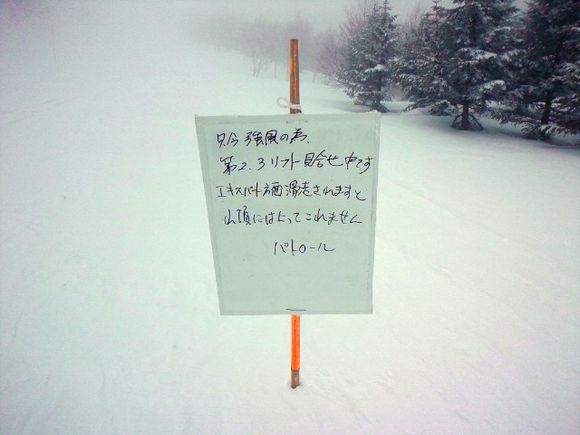 只今強風の為、
第2.3リフト見合せ中です
エキスパート方面滑走されますと
山頂にはもどってこれません
パトロール